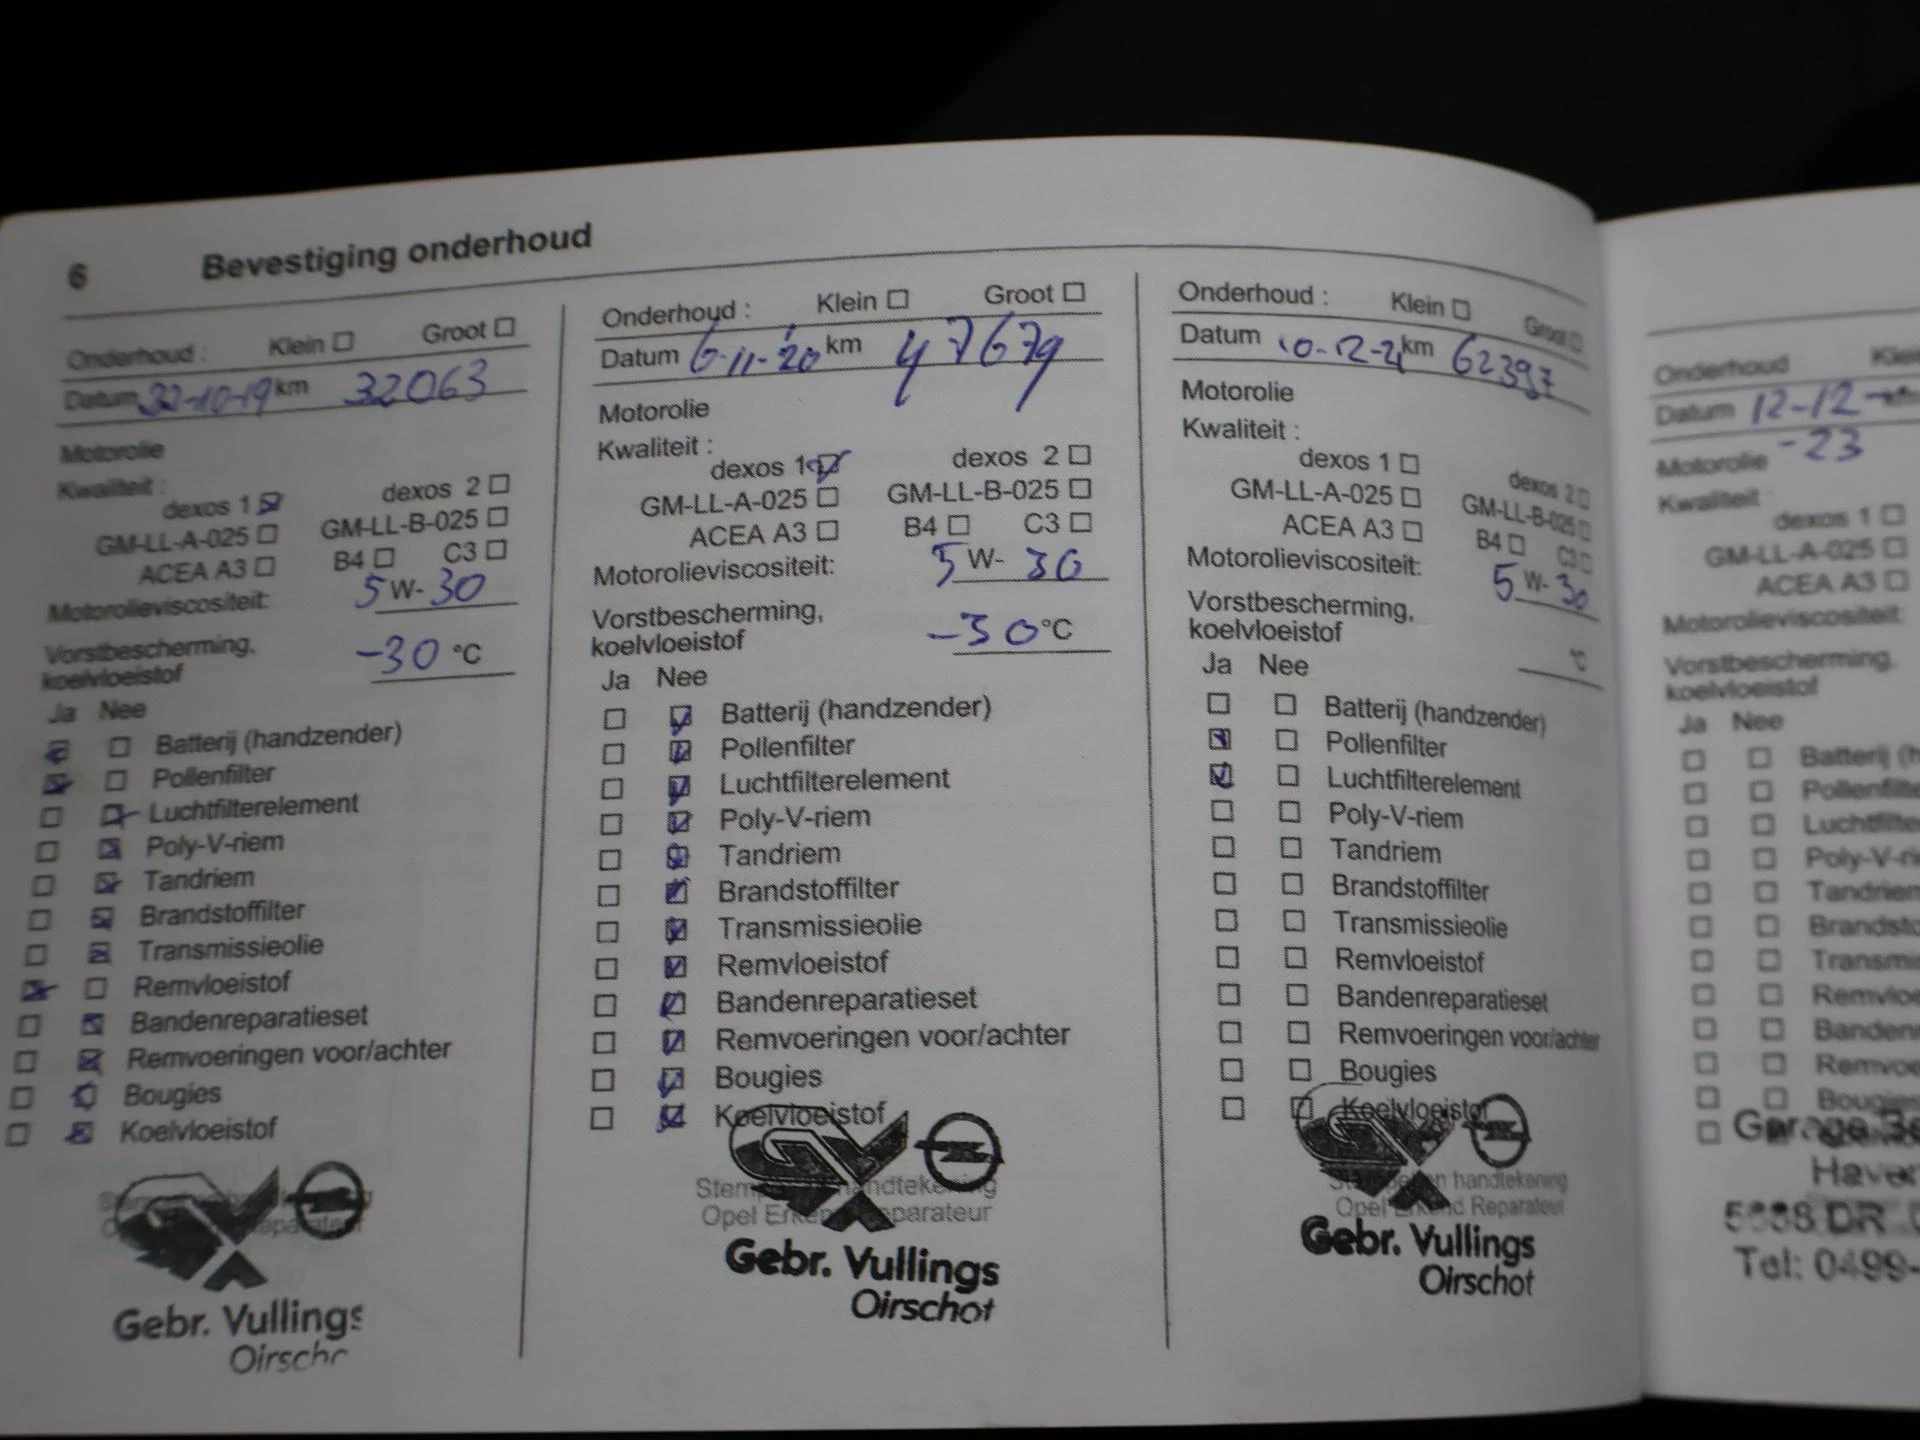 6 Bevestiging onderhoud
Onderhoud : Klein Groot
Datum 22-10-19 km 32063
Motorolie
Kwaliteit :
dexos 1 dexos 2
GM-LL-A-025 GM-LL-B-025
ACEA A3 B4 C3
Motorolieviscositeit: 5 W- 30
Vorstbescherming,
koelvloeistof -30 °C
Ja Nee
Batterij (handzender)
Pollenfilter
Luchtfilterelement
Poly-V-riem
Tandriem
Brandstoffilter
Transmissieolie
Remvloeistof
Bandenreparatieset
Remvoeringen voor/achter
Bougies
Koelvloeistof
Gebr. Vullings
Oirscho
Onderhoud : Klein Groot
Datum 6-11-'20 km 47679
Motorolie
Kwaliteit :
dexos 1 dexos 2
GM-LL-A-025 GM-LL-B-025
ACEA A3 B4 C3
Motorolieviscositeit: 5 W- 30
Vorstbescherming,
koelvloeistof -30 °C
Ja Nee
Batterij (handzender)
Pollenfilter
Luchtfilterelement
Poly-V-riem
Tandriem
Brandstoffilter
Transmissieolie
Remvloeistof
Bandenreparatieset
Remvoeringen voor/achter
Bougies
Koelvloeistof
Stempel handtekening
Opel Erkend Reparateur
Gebr. Vullings
Oirschot
Onderhoud : Klein Groot
Datum 10-12-21 km 62397
Motorolie
Kwaliteit :
dexos 1 dexos 2
GM-LL-A-025 GM-LL-B-025
ACEA A3 B4 C3
Motorolieviscositeit: 5 W- 30
Vorstbescherming,
koelvloeistof °C
Ja Nee
Batterij (handzender)
Pollenfilter
Luchtfilterelement
Poly-V-riem
Tandriem
Brandstoffilter
Transmissieolie
Remvloeistof
Bandenreparatieset
Remvoeringen voor/achter
Bougies
Koelvloeistof
Stempel en handtekening
Opel Erkend Reparateur
Gebr. Vullings
Oirschot
Onderhoud Klei
Datum 12-12-
Motorolie -23
Kwaliteit :
dexos 1
GM-LL-A-025
ACEA A3
Motorolieviscositeit:
Vorstbescherming,
koelvloeistof
Ja Nee
Batterij (h
Pollenfilte
Luchtfilte
Poly-V-rie
Tandriem
Brandsto
Transmis
Remvloe
Bandenr
Remvoe
Bougies
Garage
Haven
5688 DR
Tel: 0499-